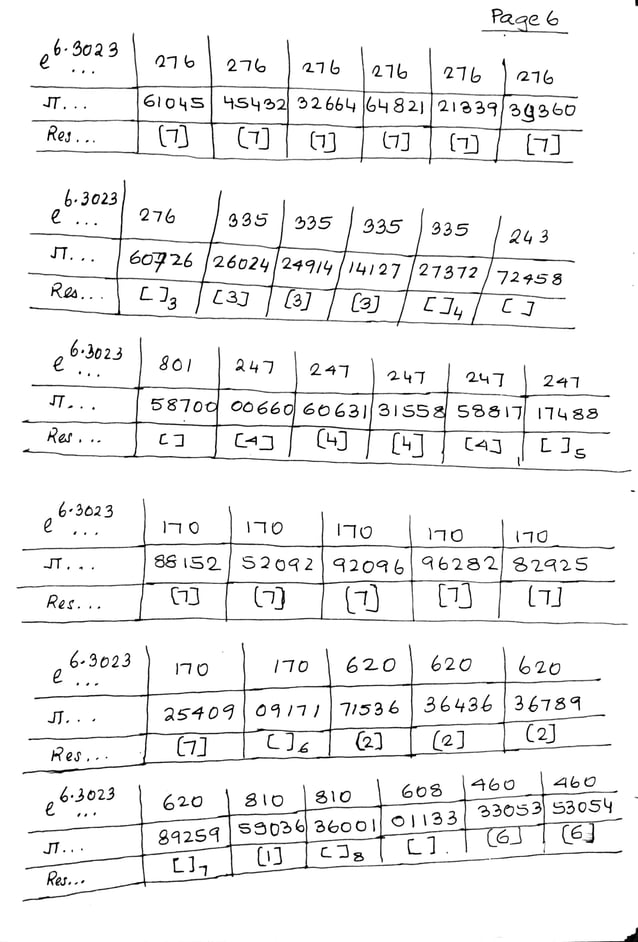 Page 6
e^6.3023... 276 276 276 276 276 276
π... 61045 45432 32664 64821 21339 39360
Res... [7] [7] [7] [7] [7] [7]
e^6.3023... 276 335 335 335 335 243
π... 60726 26024 24914 14127 27372 72458
Res... []₃ [3] [3] [3] []₄ []
e^6.3023... 801 247 247 247 247 247
π... 58700 00660 60631 31558 58817 17488
Res... [] [4] [4] [4] [4] []₅
e^6.3023... 170 170 170 170 170
π... 88152 52092 92096 96282 82925
Res... [7] [7] [7] [7] [7]
e^6.3023... 170 170 620 620 620
π... 25409 09171 71536 36436 36789
Res... [7] []₆ [2] [2] [2]
e^6.3023... 620 810 810 608 460 460
π... 89259 59036 36001 01133 33053 53054
Res... []₇ [1] []₈ []. [6] [6]